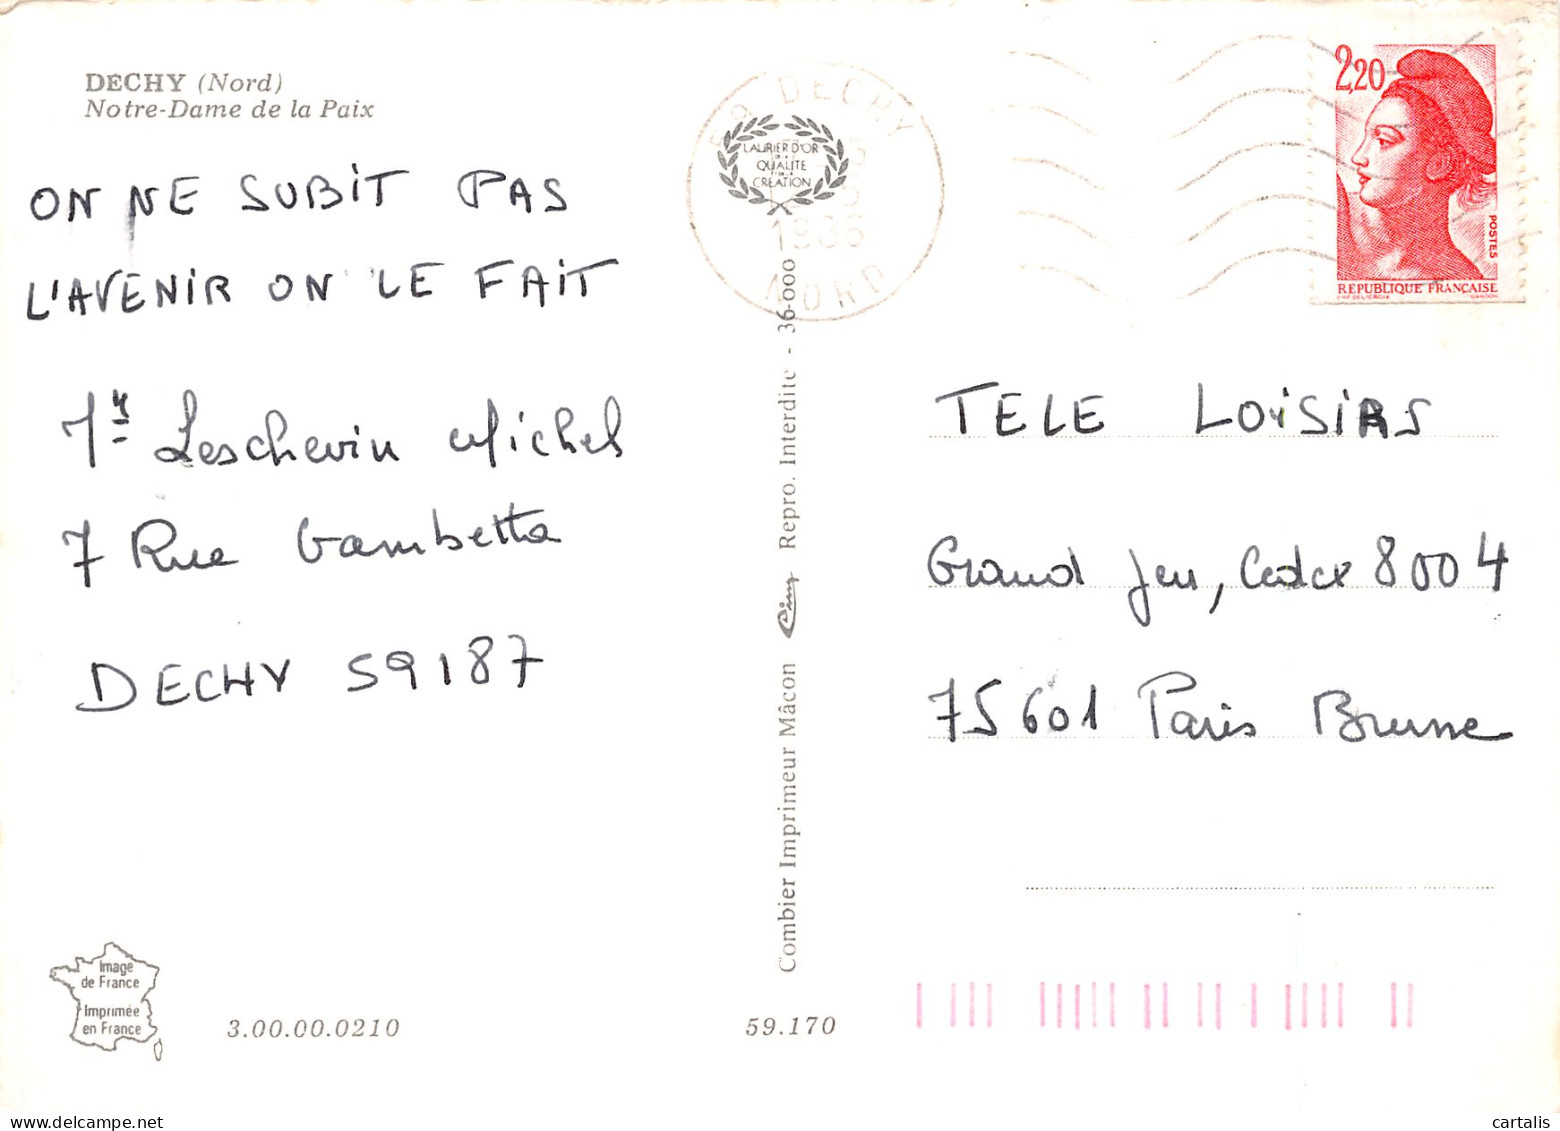 DECHY (Nord)
Notre-Dame de la Paix
ON NE SUBIT PAS
L'AVENIR ON LE FAIT
Mr Leschevin Michel
7 Rue Gambetta
DECHY 59187
Image
de France
Imprimée
en France
3.00.00.0210
59.170
Combier Imprimeur Mâcon Cim Repro. Interdite - 36-000
DECHY
LAURIER D'OR
DE LA
QUALITE
CREATION
1986
NORD
2,20
POSTES
REPUBLIQUE FRANÇAISE
TELE LOISIRS
Grand Jeu, Cedex 8004
75601 Paris Brune
cartalis